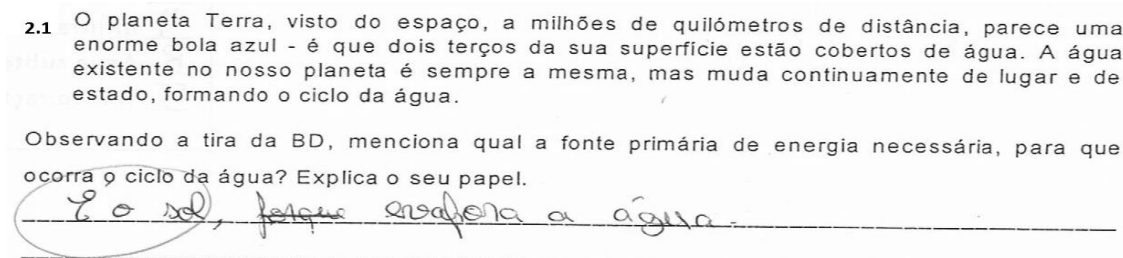 2.1 O planeta Terra, visto do espaço, a milhões de quilómetros de distância, parece uma
enorme bola azul - é que dois terços da sua superfície estão cobertos de água. A água
existente no nosso planeta é sempre a mesma, mas muda continuamente de lugar e de
estado, formando o ciclo da água.
Observando a tira da BD, menciona qual a fonte primária de energia necessária, para que
ocorra o ciclo da água? Explica o seu papel.
É o sol, porque evapora a água.